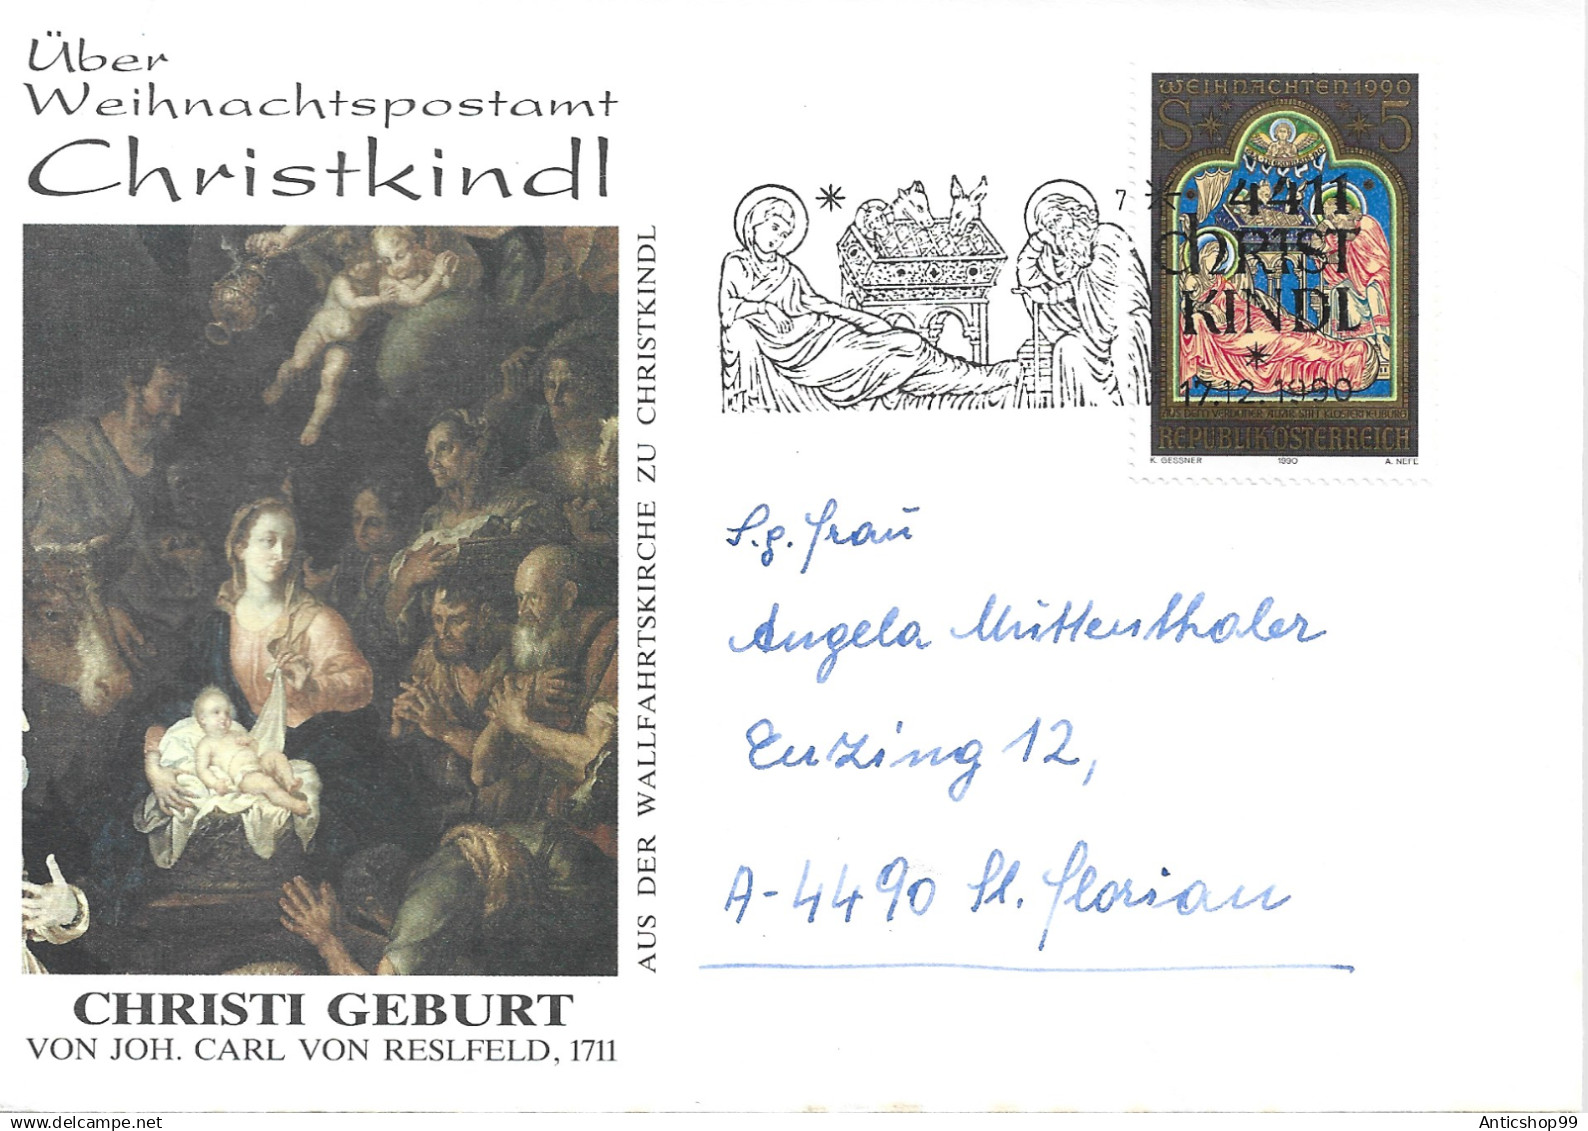 Über
Weihnachtspostamt
Christkindl
AUS DER WALLFAHRTSKIRCHE ZU CHRISTKINDL
CHRISTI GEBURT
VON JOH. CARL VON RESLFELD, 1711
7
4411
CHRIST
KINDL
17.12.1990
WEIHNACHTEN 1990
S 5
AUS DEM VERDUNER ALTAR STIFT KLOSTERNEUBURG
REPUBLIK ÖSTERREICH
K. GESSNER 1990 A. NEFE
S.g. Frau
Angela Mittenthaler
Enzing 12,
A-4490 St. Florian
Anticshop99